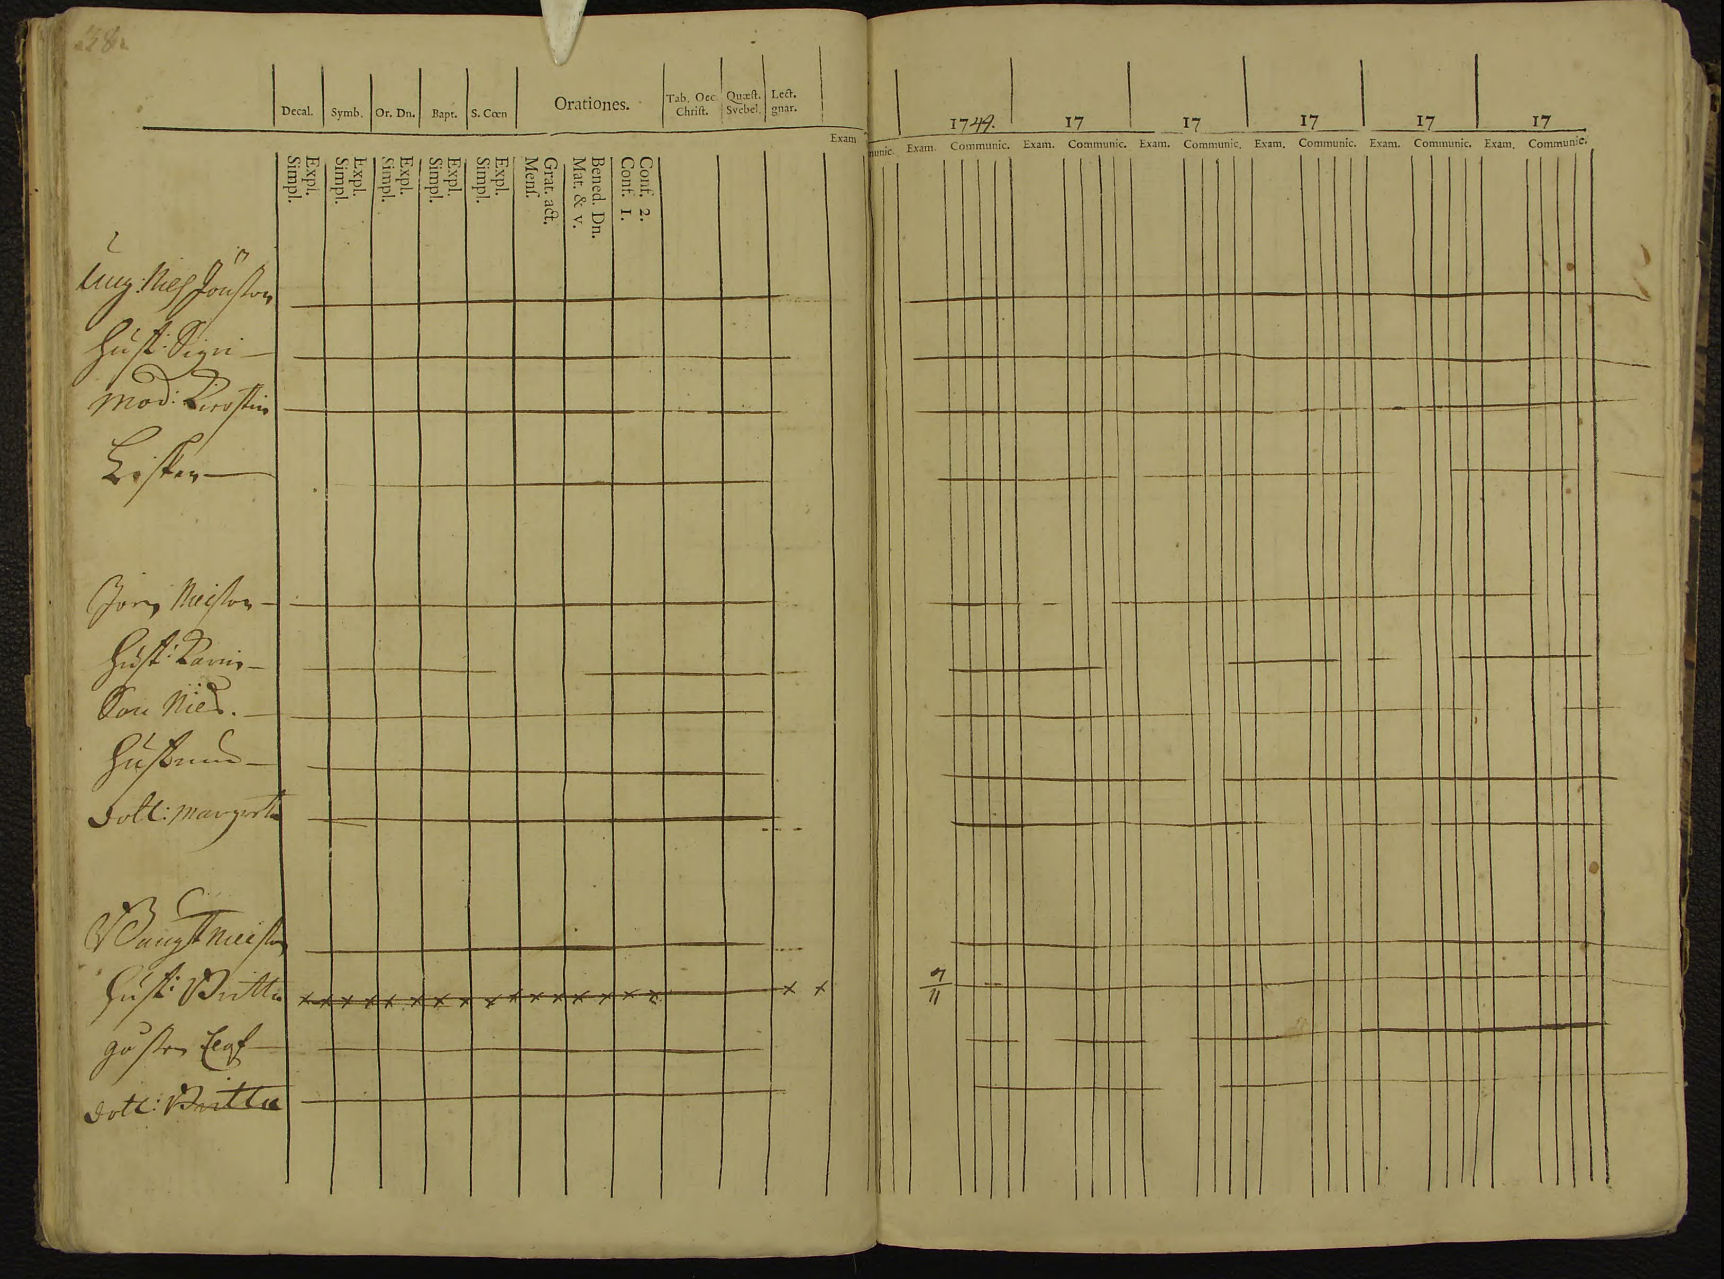 38.
Decal. Symb. Or. Dn. Bapt. S. Cœn Orationes. Tab. Oec. Christ. Quæst. Svebel. Lect. gnar.
Exam
Simpl. Expl. Simpl. Expl. Simpl. Expl. Simpl. Expl. Simpl. Expl. Mens. Grat. act. Mat. & v. Bened. Dn. Conf. 1. Conf. 2.
Jönsson
Hust: Signi
Mod: Kirstin
Nilsson
Hust: Karin
Son Nils.
Hustrun
Dott: Margreta
Bengt Nilsson
Hust: Britta
Dott: Britta
1749. 17 17 17 17 17
munic. Exam. Communic. Exam. Communic. Exam. Communic. Exam. Communic. Exam. Communic. Exam. Communic.